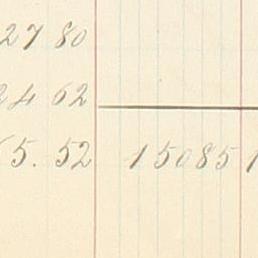 27 80
24 62
65. 52 15085 1